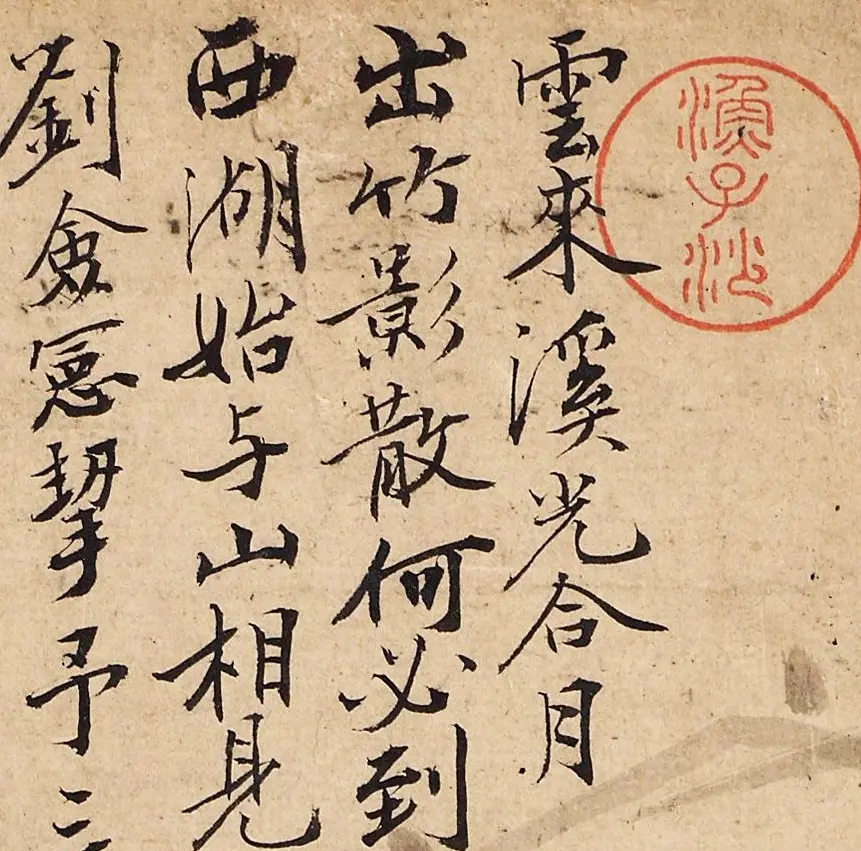 漁子
雲來溪光合月
出竹影散何必到
西湖始与山相見
劉僉憲挈予